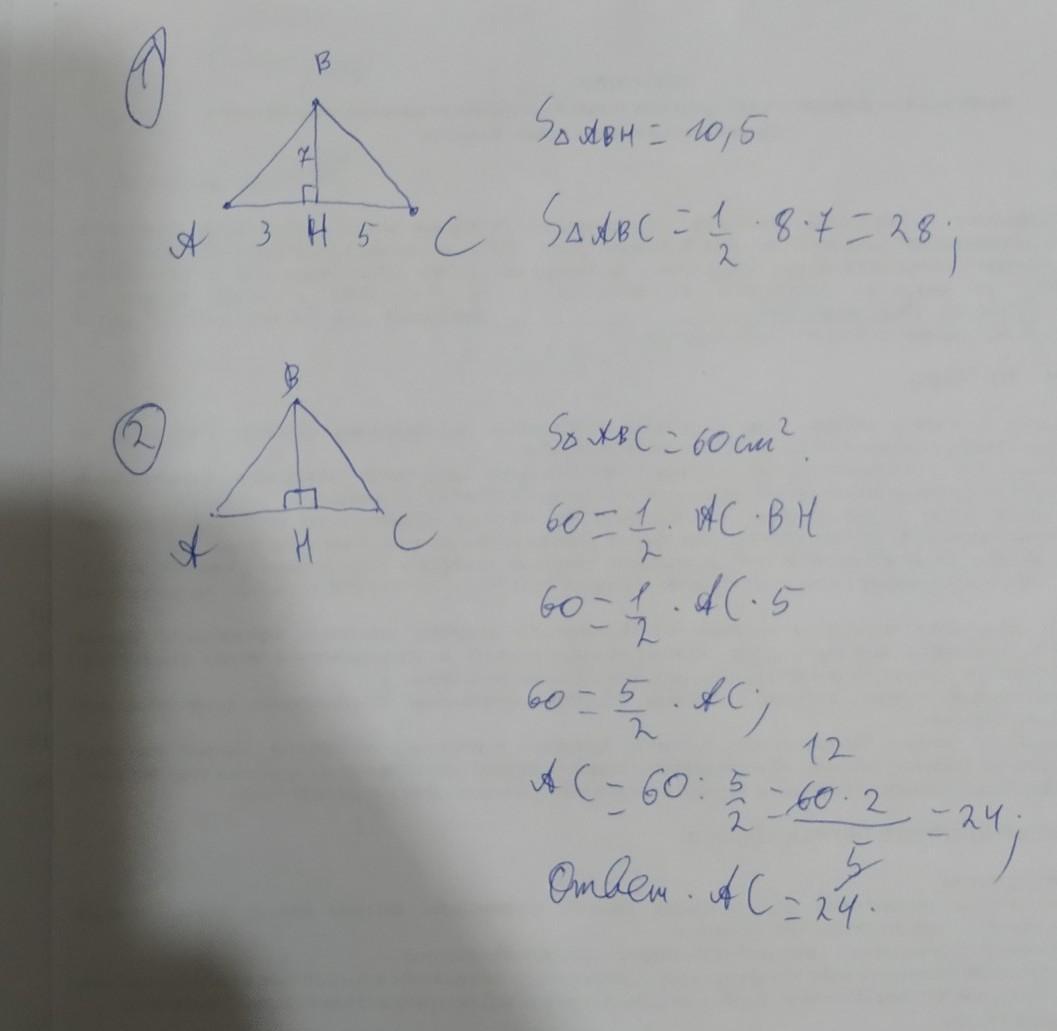 1
B
7
A 3 H 5 C
S△ABH = 10,5
S△ABC = 1/2 · 8 · 7 = 28;
2
B
A H C
S△ABC = 60 см².
60 = 1/2 · AC · BH
60 = 1/2 · AC · 5
60 = 5/2 · AC;
12
AC = 60 : 5/2 = 60 · 2/5 = 24;
Ответ. AC = 24.